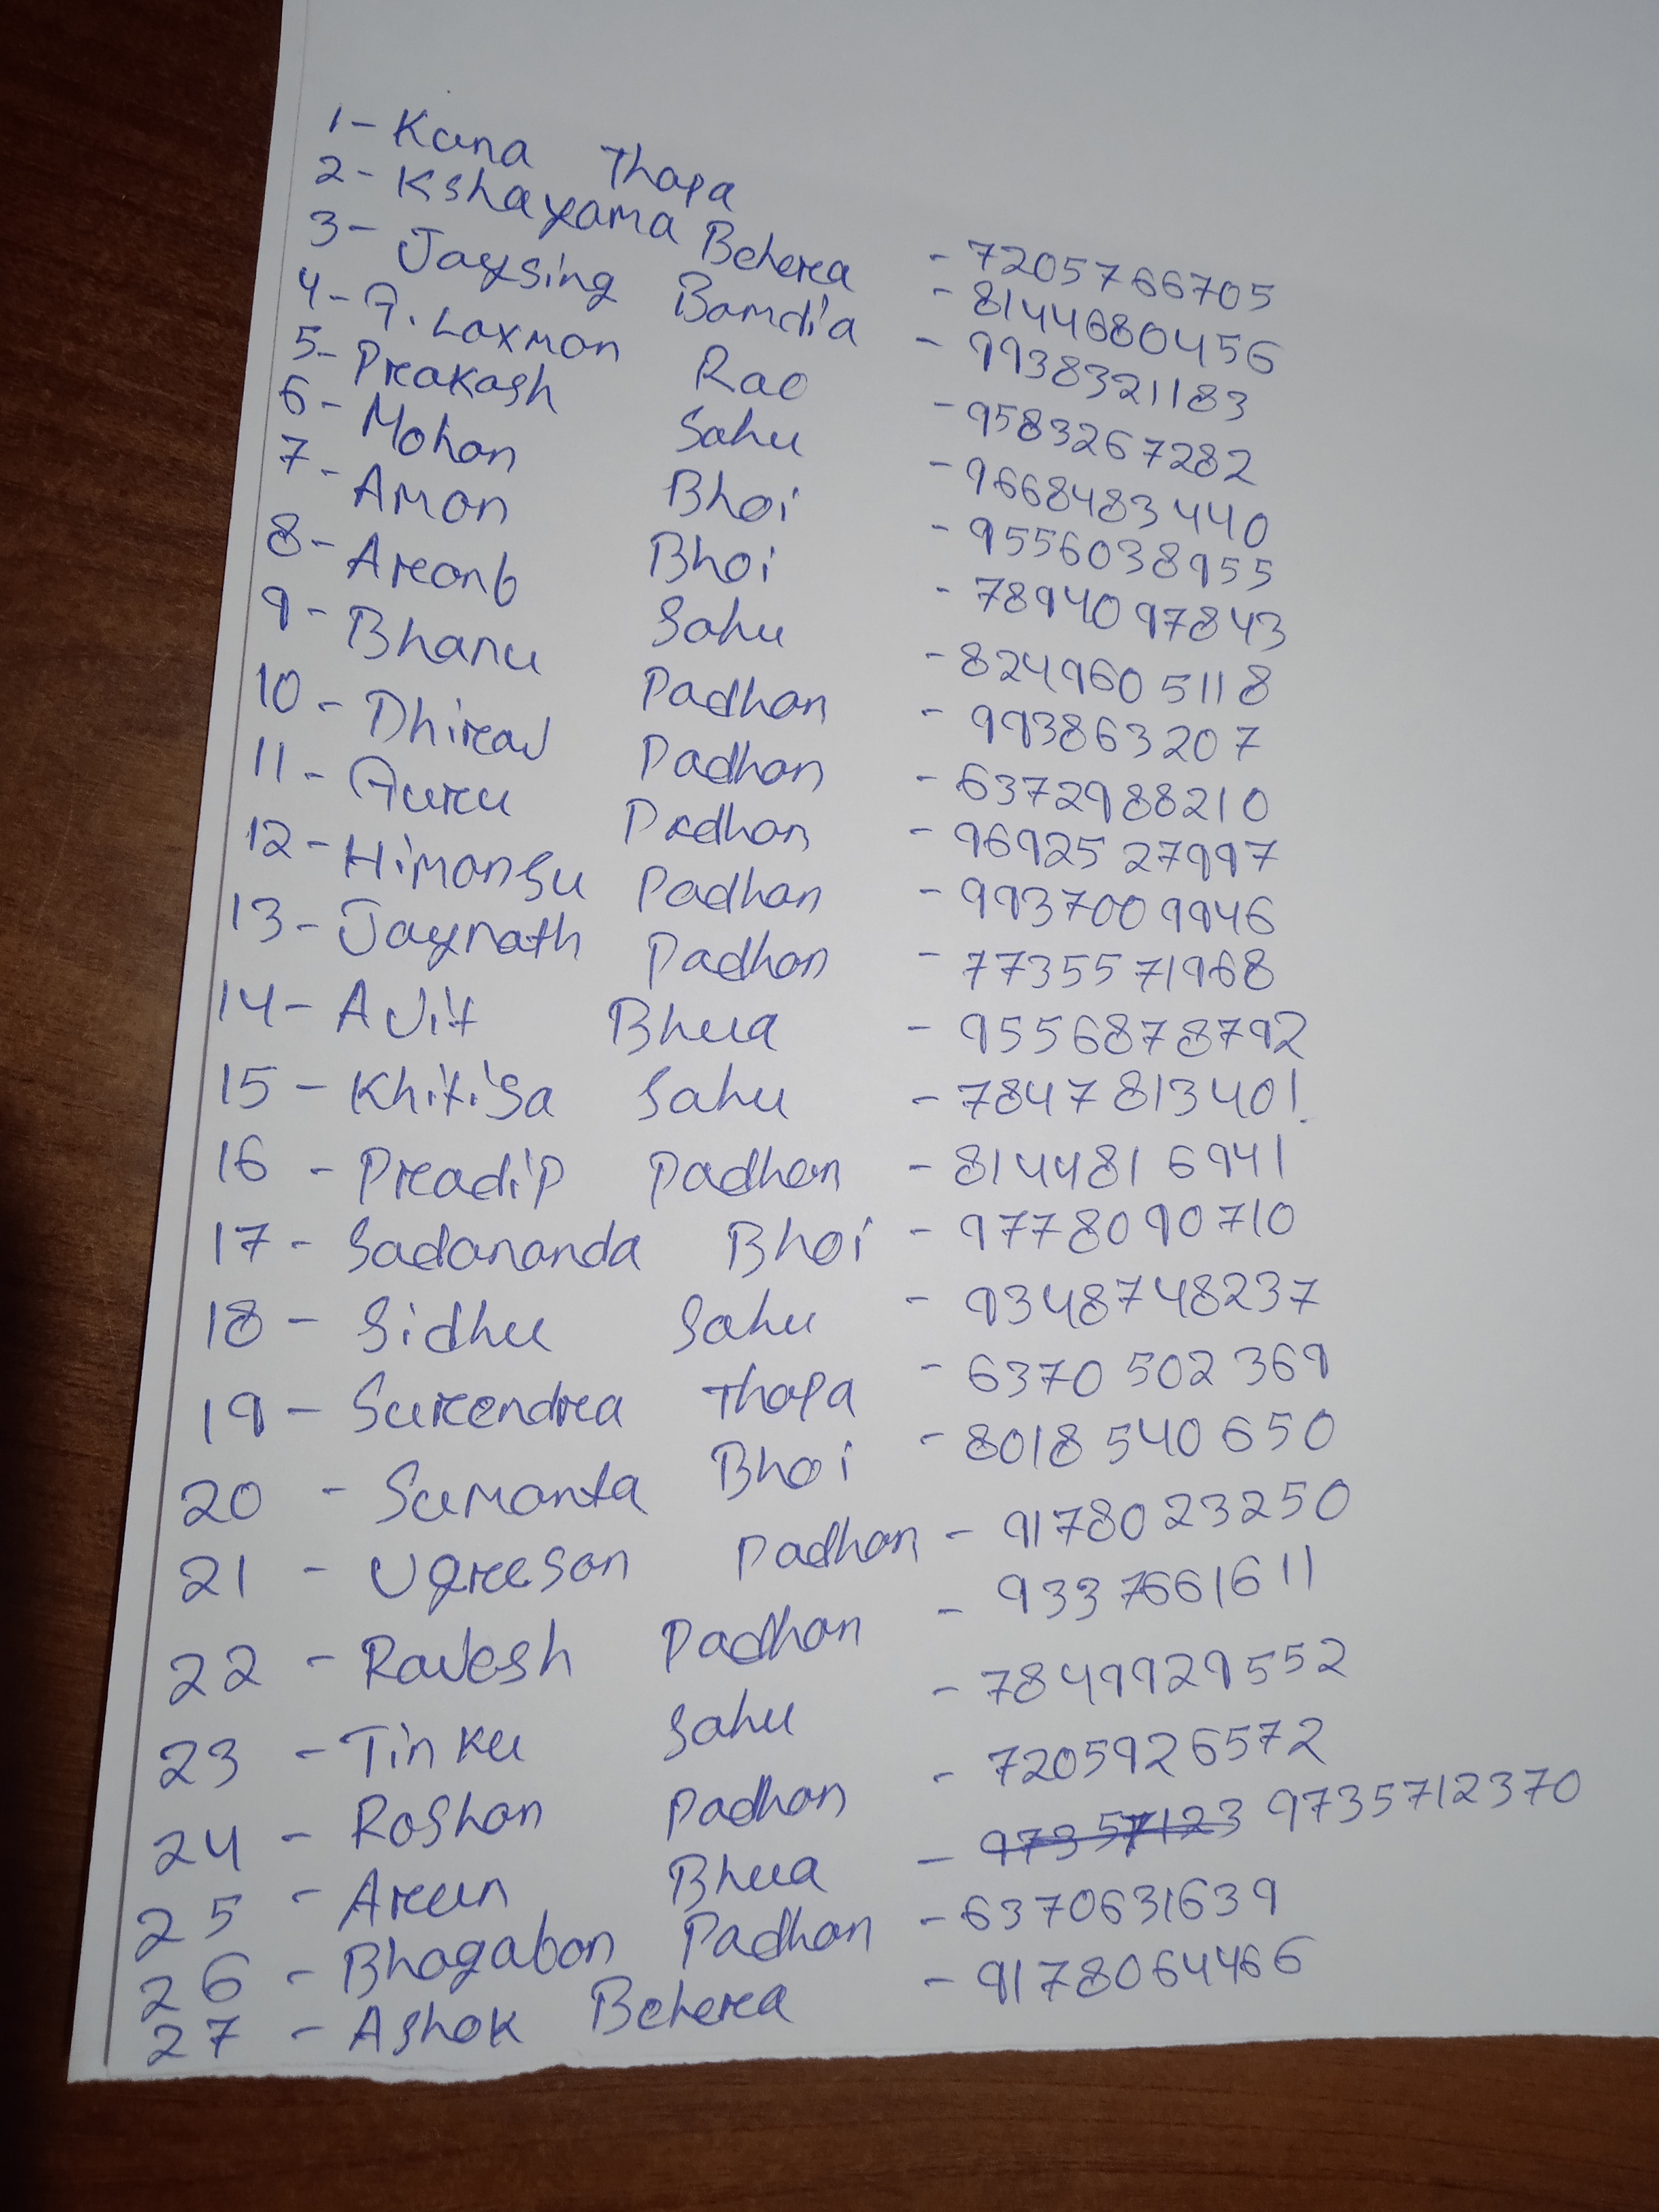 1- Kuna Thapa - 7205766705
2- Kshayama Behera - 8144680456
3- Jaysing Bamdia - 9938321183
4- G. Laxman Rao - 9583267282
5- Prakash Sahu - 9668483440
6- Mohan Bhoi - 9556038955
7- Aman Bhoi - 7894097843
8- Aranb Sahu - 8249605118
9- Bhanu Padhan - 993863207
10- Dhiraj Padhan - 6372988210
11- Guru Padhan - 9692527997
12- Himansu Padhan - 9937009946
13- Jaynath Padhan - 7735571968
14- Ajit Bhua - 9556878792
15- Khitisa Sahu - 7847813401
16- Pradip Padhan - 8144816941
17- Sadananda Bhoi - 9778090710
18- Sidhu Sahu - 9348748237
19- Surendra Thapa - 6370502369
20- Sumanta Bhoi - 8018540650
21- Ugresan Padhan - 9178023250
22- Rajesh Padhan - 9337661611
23- Tinku Sahu - 7849929552
24- Roshan Padhan - 7205926572
25- Arun Bhua - 97357123 9735712370
26- Bhagaban Padhan - 6370631639
27- Ashok Behera - 9178064466